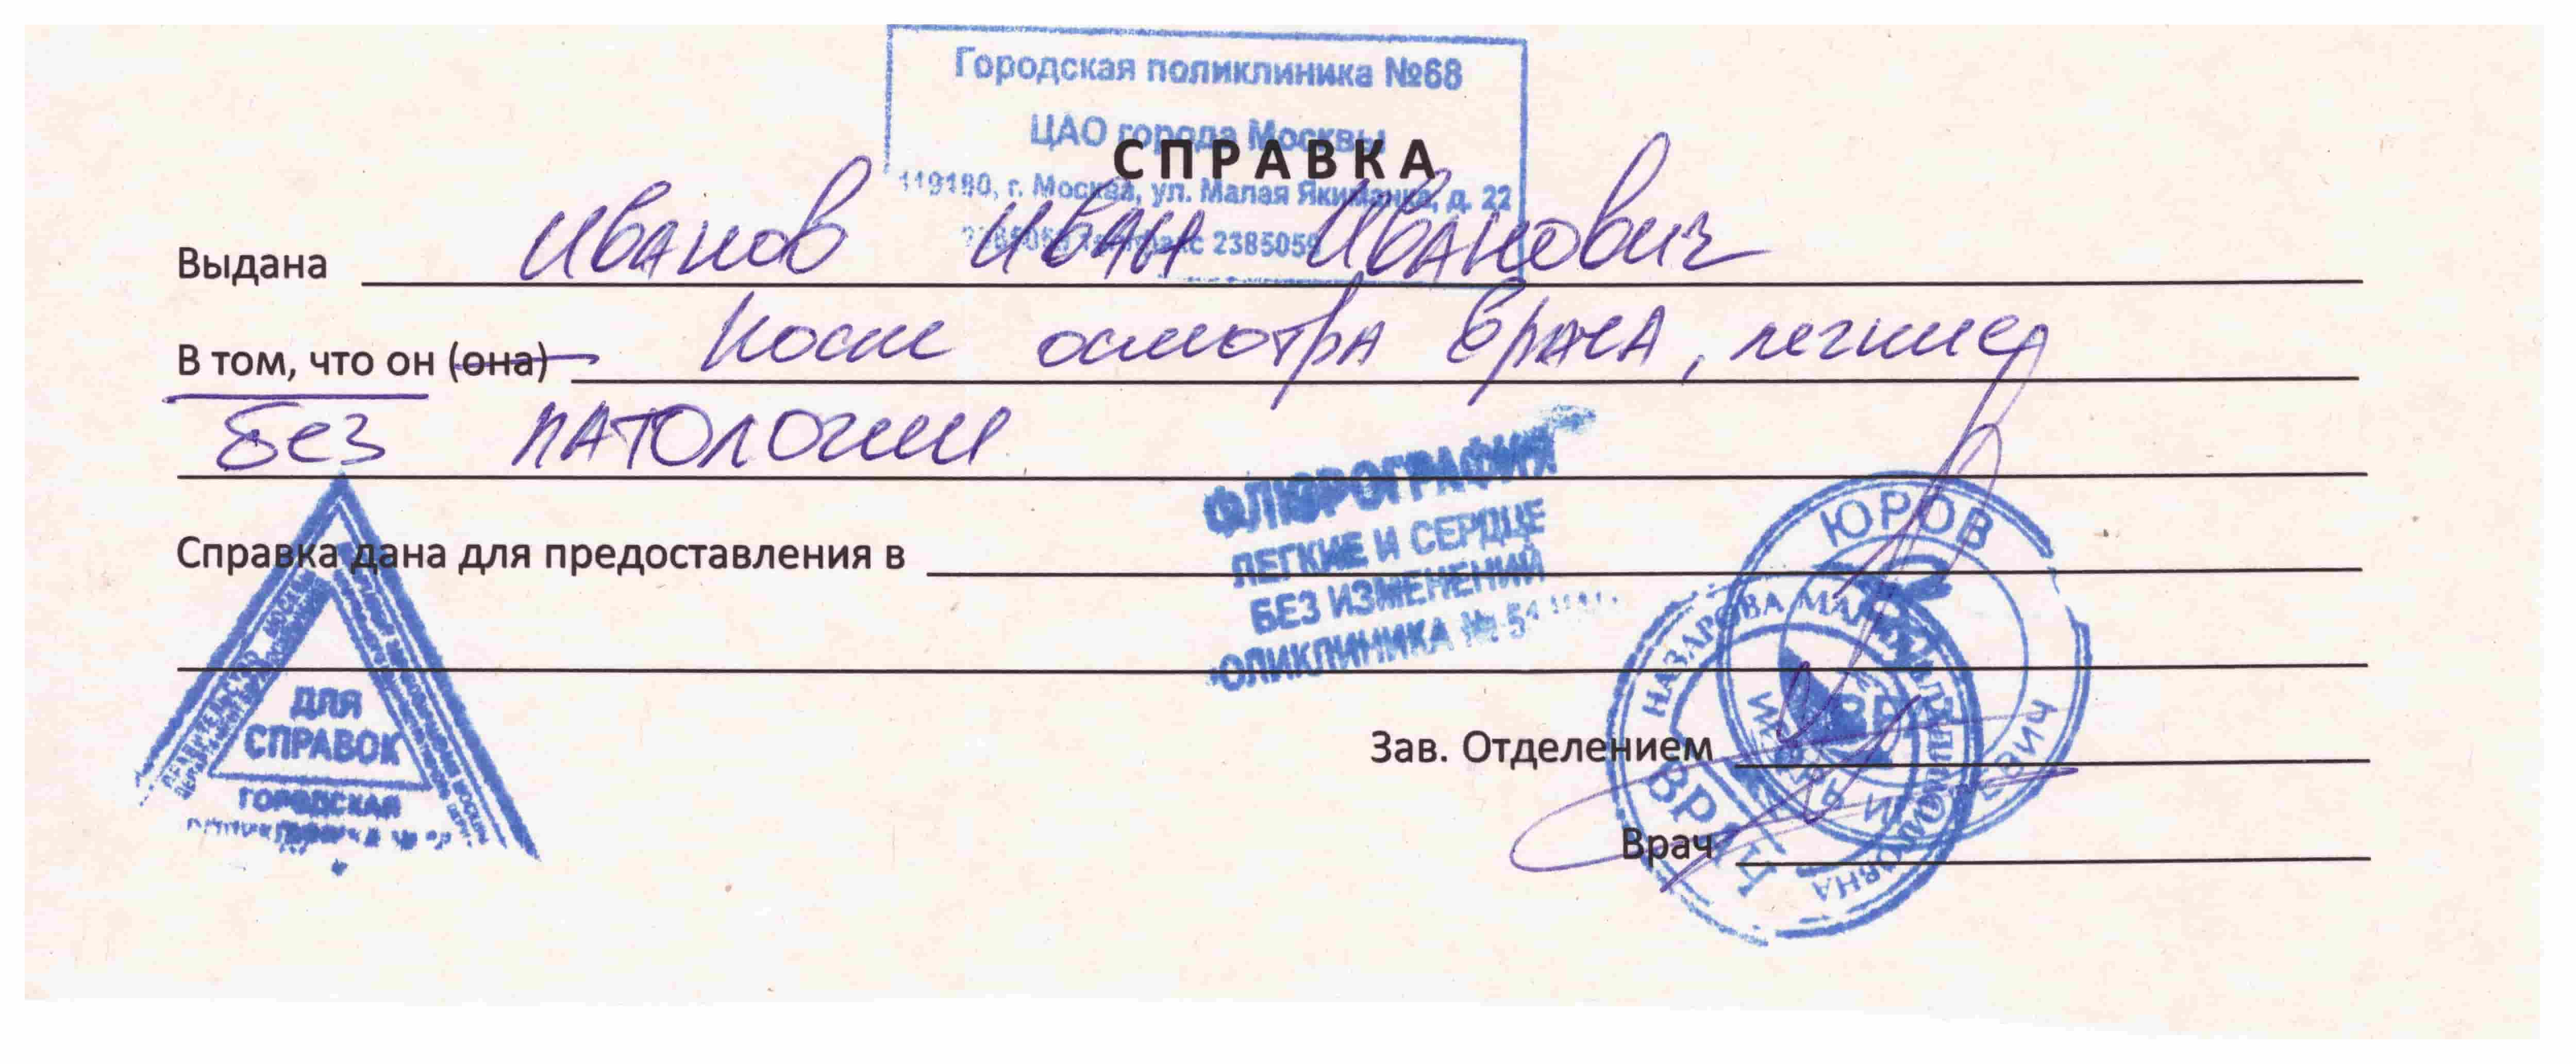 Городская поликлиника №68
ЦАО города Москвы
СПРАВКА
119180, г. Москва, ул. Малая Якиманка, д. 22
2385059
Выдана Иванов Иван Иванович
В том, что он (она) после осмотра врача, легкие
без патологии
ФЛЮРОГРАФИЯ
ЛЕГКИЕ И СЕРДЦЕ
БЕЗ ИЗМЕНЕНИЙ
ОЛИКЛИНИКА №
Справка дана для предоставления в
ДЛЯ
СПРАВОК
ГОРОДСКАЯ
ЮРОВ
НАЗАРОВА
ВРАЧ
Зав. Отделением
Врач